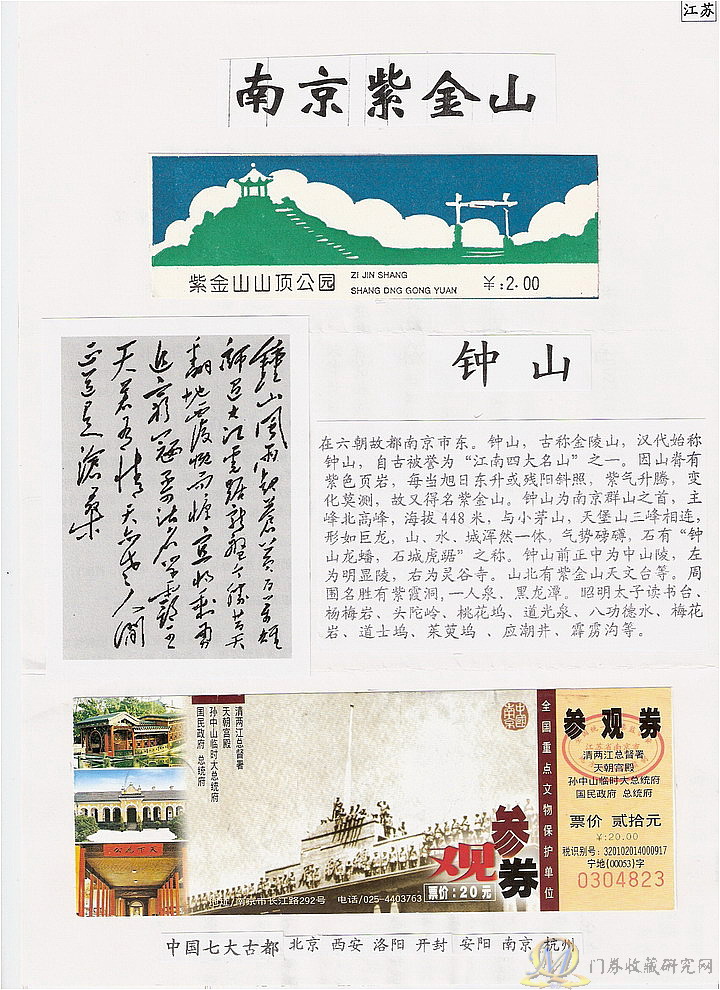 江苏
南京紫金山
紫金山山顶公园
ZI JIN SHANG
SHANG DNG GONG YUAN
￥:2.00
钟山
鍾山風雨起蒼黄百萬雄
師過大江虎踞龍盤今勝昔天
翻地覆慨而慷宜將剩勇
追窮寇不可沽名學霸王
天若有情天亦老人間
正道是滄桑
在六朝故都南京市东。钟山，古称金陵山，汉代始称
钟山，自古被誉为“江南四大名山”之一。因山脊有
紫色页岩，每当旭日东升或残阳斜照，紫气升腾，变
化莫测，故又得名紫金山。钟山为南京群山之首，主
峰北高峰，海拔448米，与小茅山，天堡山三峰相连，
形如巨龙，山、水、城浑然一体，气势磅礴，石有“钟
山龙蟠，石城虎踞”之称。钟山前正中为中山陵，左
为明显陵，右为灵谷寺。山北有紫金山天文台等。周
围名胜有紫霞洞,一人泉、黑龙潭。昭明太子读书台、
杨梅岩、头陀岭、桃花坞、道光泉、八功德水、梅花
岩、道士坞、茱萸坞、应潮井、霹雳沟等。
清两江总督署
天朝宫殿
孙中山临时大总统府
国民政府 总统府
天下为公
中國
南京
参观券
票价：20元
地址/南京市长江路292号 电话/025-4403763
全国重点文物保护单位
参观券
清两江总督署
天朝宫殿
孙中山临时大总统府
国民政府 总统府
票价 贰拾元
￥:20.00
税识别号：320102014000917
宁地(00053)字
0304823
中国七大古都 北京 西安 洛阳 开封 安阳 南京 杭州
门券收藏研究网